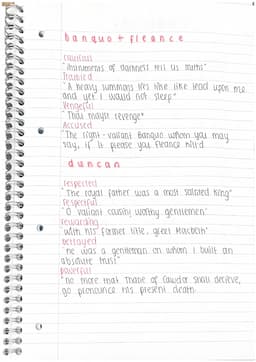 banquo + fleance
cautious
"instruments of darkness tell us truths"
troubled
"A heavy summons lies like like lead upon me
and yet I would not sleep"
Vengeful
"Thou mayst revenge"
Accused
"The right-valiant Banquo whom you may
say, if it please you Fleance killed
duncan
respected
"The royal father was a most sainted king"
respectful
"O valiant cousin, worthy gentlemen"
rewarding
"with his former title, greet Macbeth"
betrayed
"he was a gentleman on whom I built an
absolute trust"
powerful
"no more that Thane of Cawdor shall deceive,
go pronounce his present death